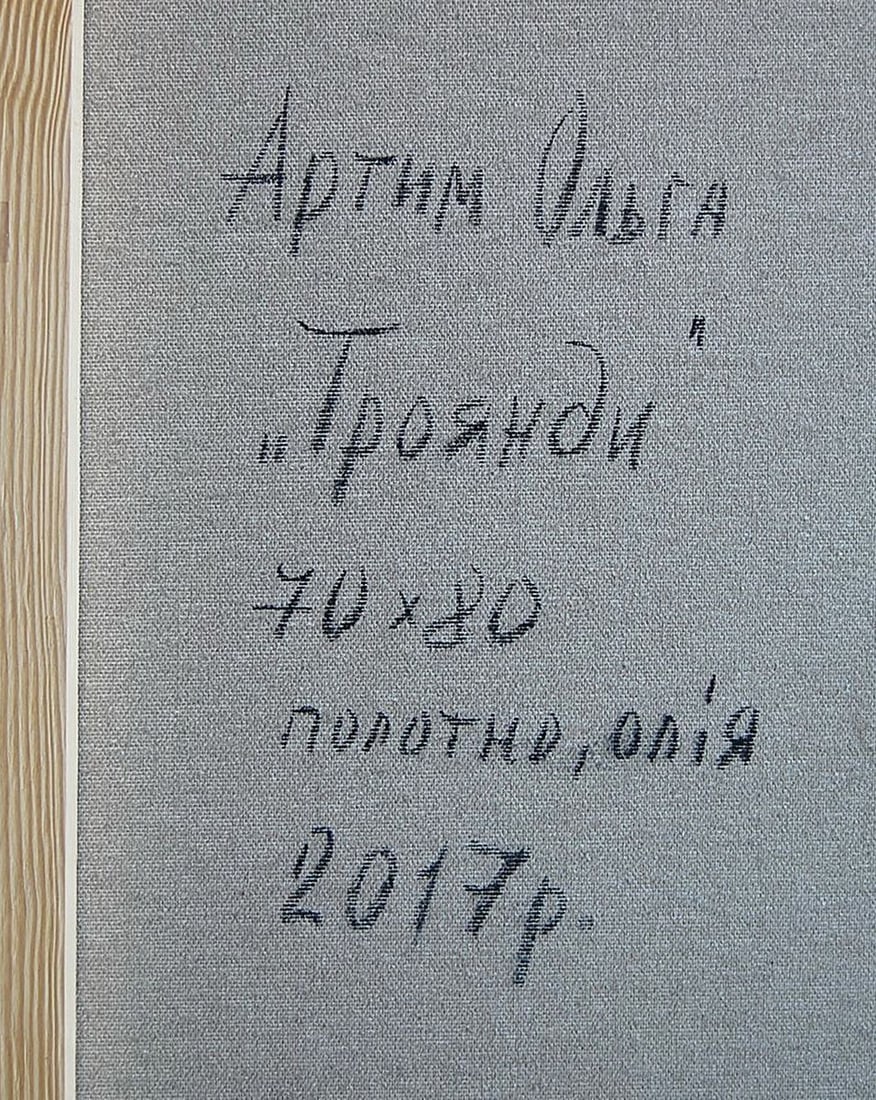 Артим Ольга
„Троянди"
70х80
полотно, олія
2017р.